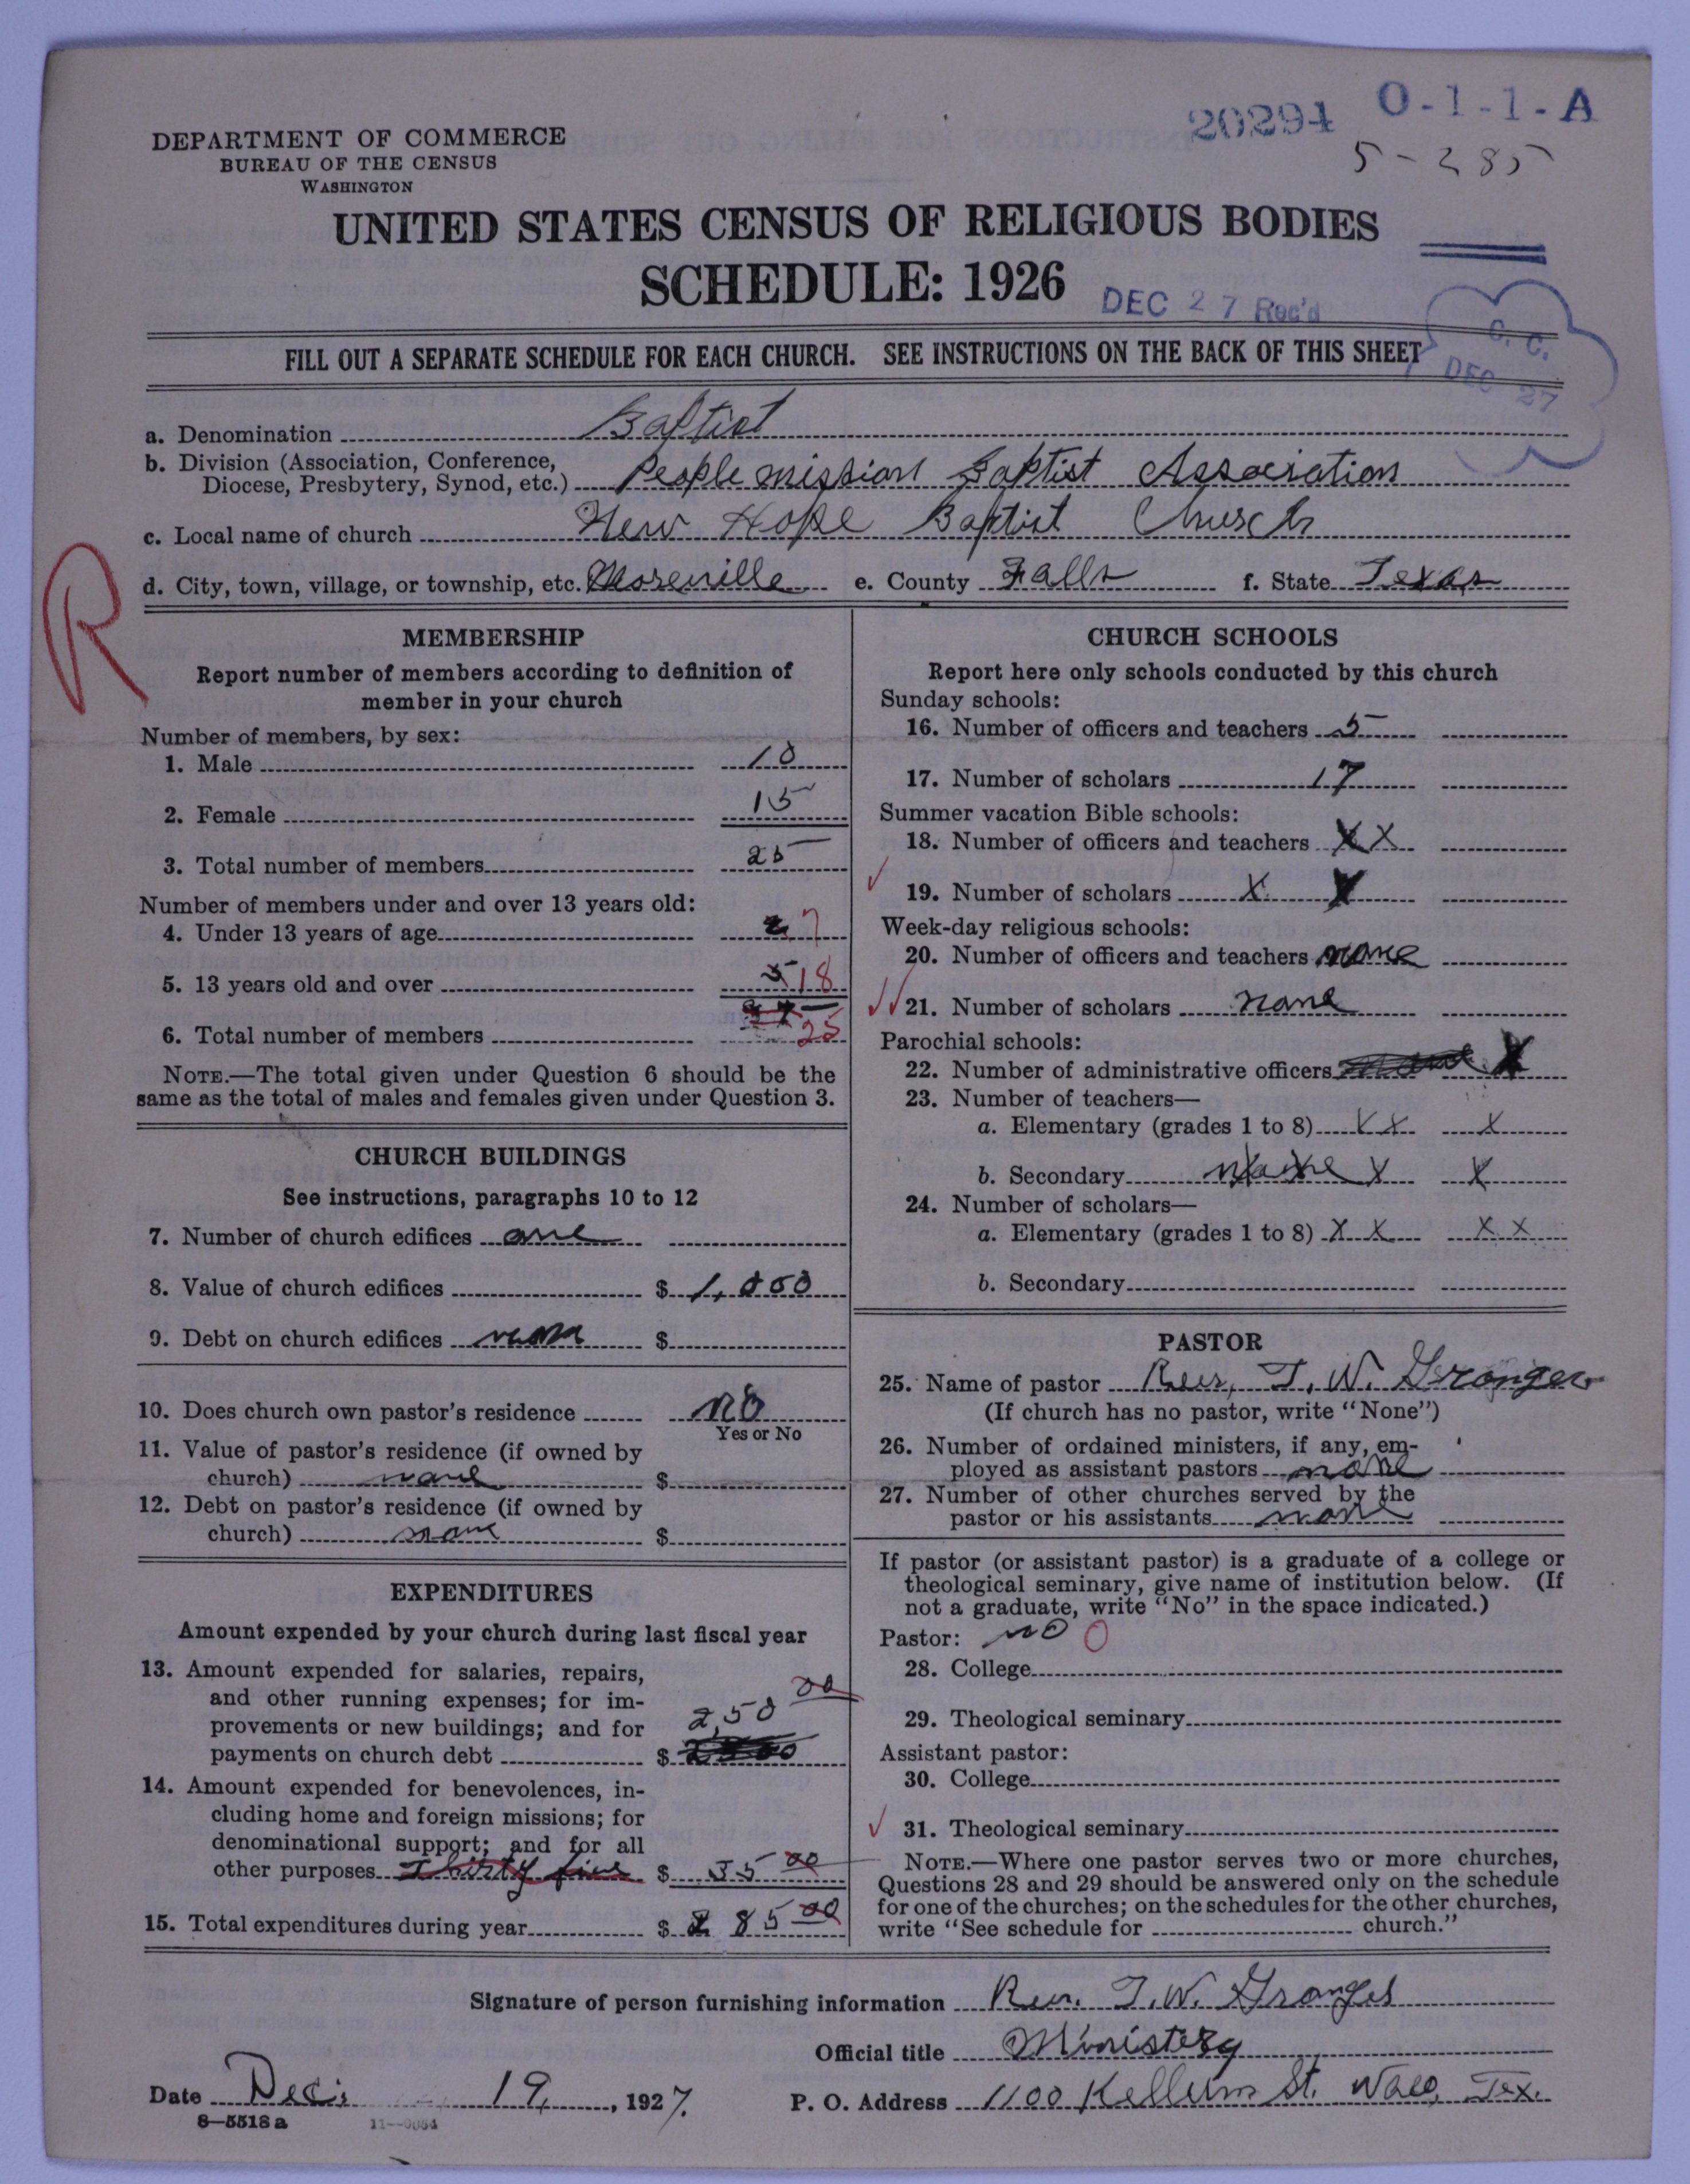 20294 O-1-1-A
5-285
DEPARTMENT OF COMMERCE
BUREAU OF THE CENSUS
WASHINGTON
UNITED STATES CENSUS OF RELIGIOUS BODIES
SCHEDULE: 1926
DEC 27 Rec'd
C. C.
DEC 27
FILL OUT A SEPARATE SCHEDULE FOR EACH CHURCH. SEE INSTRUCTIONS ON THE BACK OF THIS SHEET
a. Denomination Baptist
b. Division (Association, Conference,
Diocese, Presbytery, Synod, etc.) People mission Baptist Association
c. Local name of church New Hope Baptist Church
d. City, town, village, or township, etc. Moreville e. County Falls f. State Texas
R
MEMBERSHIP
Report number of members according to definition of
member in your church
Number of members, by sex:
1. Male 10
2. Female 15
3. Total number of members 25
Number of members under and over 13 years old:
4. Under 13 years of age 7
5. 13 years old and over 18
6. Total number of members 25
NOTE.—The total given under Question 6 should be the
same as the total of males and females given under Question 3.
CHURCH BUILDINGS
See instructions, paragraphs 10 to 12
7. Number of church edifices one
8. Value of church edifices $ 1,000
9. Debt on church edifices none $
10. Does church own pastor's residence No
Yes or No
11. Value of pastor's residence (if owned by
church) none $
12. Debt on pastor's residence (if owned by
church) none $
EXPENDITURES
Amount expended by your church during last fiscal year
13. Amount expended for salaries, repairs,
and other running expenses; for im-
provements or new buildings; and for
payments on church debt $ 250 00
14. Amount expended for benevolences, in-
cluding home and foreign missions; for
denominational support; and for all
other purposes Thirty five $ 35 00
15. Total expenditures during year $ 285 00
CHURCH SCHOOLS
Report here only schools conducted by this church
Sunday schools:
16. Number of officers and teachers 5
17. Number of scholars 17
Summer vacation Bible schools:
18. Number of officers and teachers X X
19. Number of scholars X X
Week-day religious schools:
20. Number of officers and teachers none
21. Number of scholars none
Parochial schools:
22. Number of administrative officers X
23. Number of teachers—
a. Elementary (grades 1 to 8) X X X
b. Secondary none X X
24. Number of scholars—
a. Elementary (grades 1 to 8) X X X X
b. Secondary
PASTOR
25. Name of pastor Rev, T. W. Granger
(If church has no pastor, write "None")
26. Number of ordained ministers, if any, em-
ployed as assistant pastors none
27. Number of other churches served by the
pastor or his assistants none
If pastor (or assistant pastor) is a graduate of a college or
theological seminary, give name of institution below. (If
not a graduate, write "No" in the space indicated.)
Pastor: no O
28. College
29. Theological seminary
Assistant pastor:
30. College
31. Theological seminary
NOTE.—Where one pastor serves two or more churches,
Questions 28 and 29 should be answered only on the schedule
for one of the churches; on the schedules for the other churches,
write "See schedule for church."
Signature of person furnishing information Rev. T. W. Granger
Official title Ministerg
Date Dec. 19, 1927. P. O. Address 1100 Kellum St. Waco, Tex.
8—5518 a 11—9084